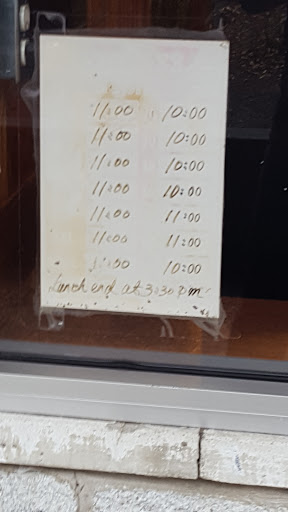 11:00 10:00
11:00 10:00
11:00 10:00
11:00 10:00
11:00 11:00
11:00 11:00
11:00 10:00
Lunch end at 3:30 pm